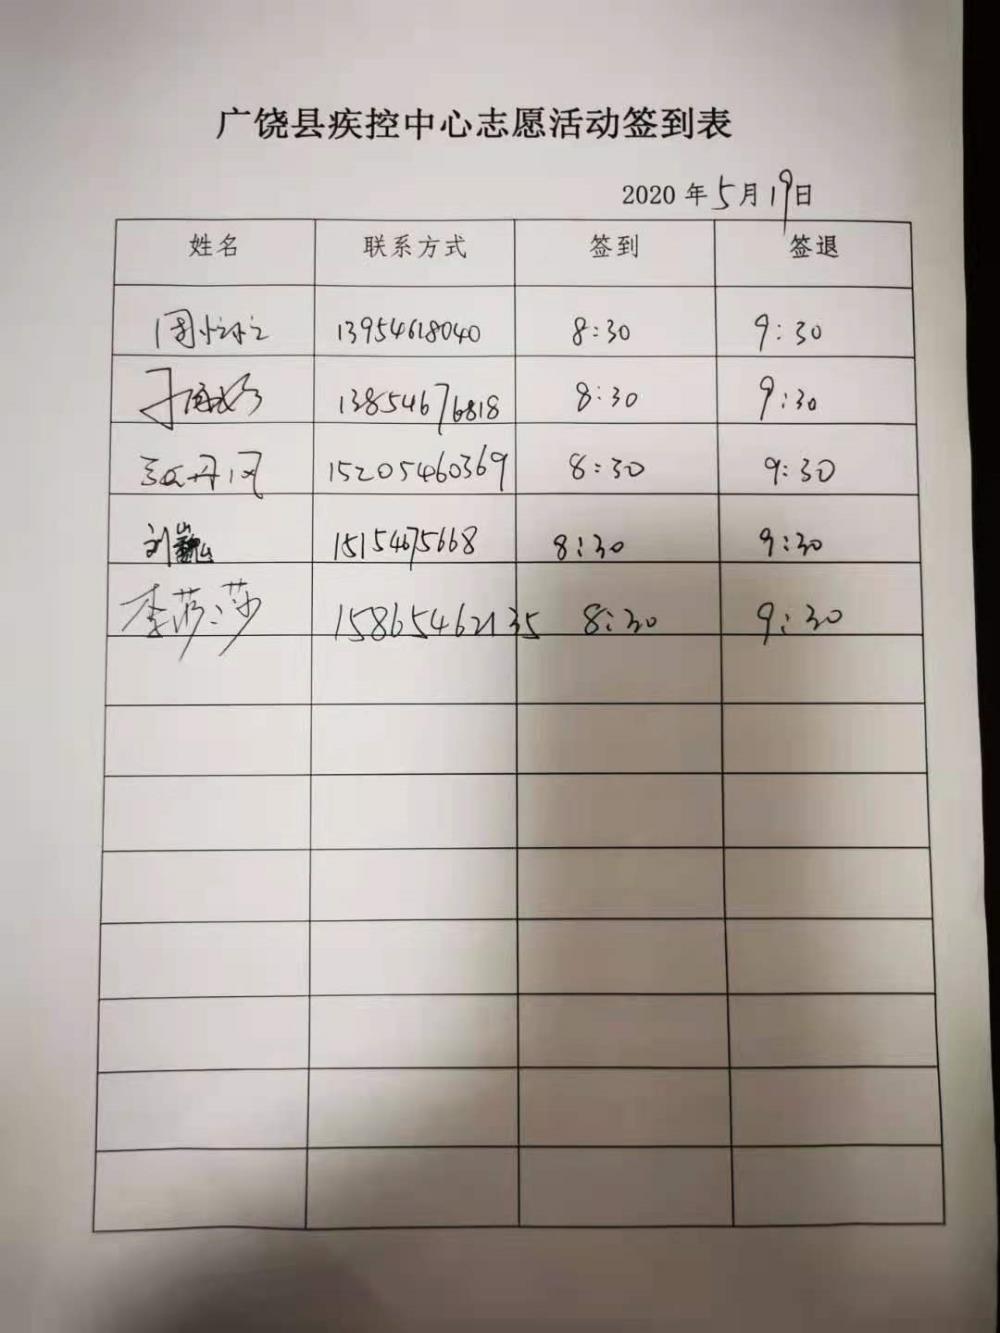 广饶县疾控中心志愿活动签到表
2020年5月19日
姓名 联系方式 签到 签退
周 13954618040 8:30 9:30
13854676818 8:30 9:30
丹凤 15205460369 8:30 9:30
刘巍 15154675668 8:30 9:30
李莎莎 15865462135 8:30 9:30